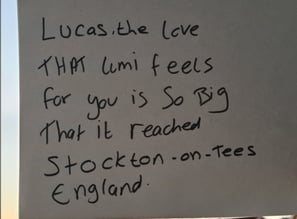 Lucas, the love
THAT Lumi feels
for you is So Big
That it reached
Stockton-on-Tees
England.